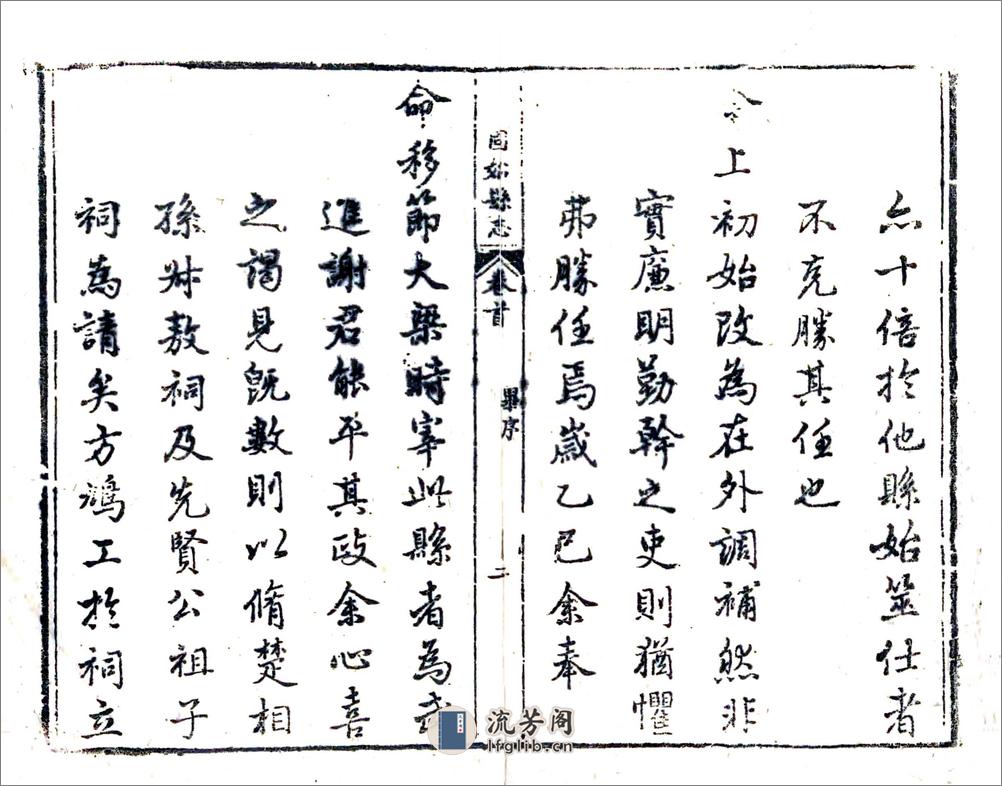 亦十倍於他縣始筮仕者
不克勝其任也
今
上初始改為在外調補然非
實廉明勤幹之吏則猶懼
弗勝任焉歲乙巳余奉
固始縣志 卷首 畢序 二
命移節大梁時宰此縣者為武
進謝君能平其政余心喜
之謁見既數則以脩楚相
孫叔敖祠及先賢公祖子
祠為請矣方鳩工於祠立
流芳阁
lfglib.cn